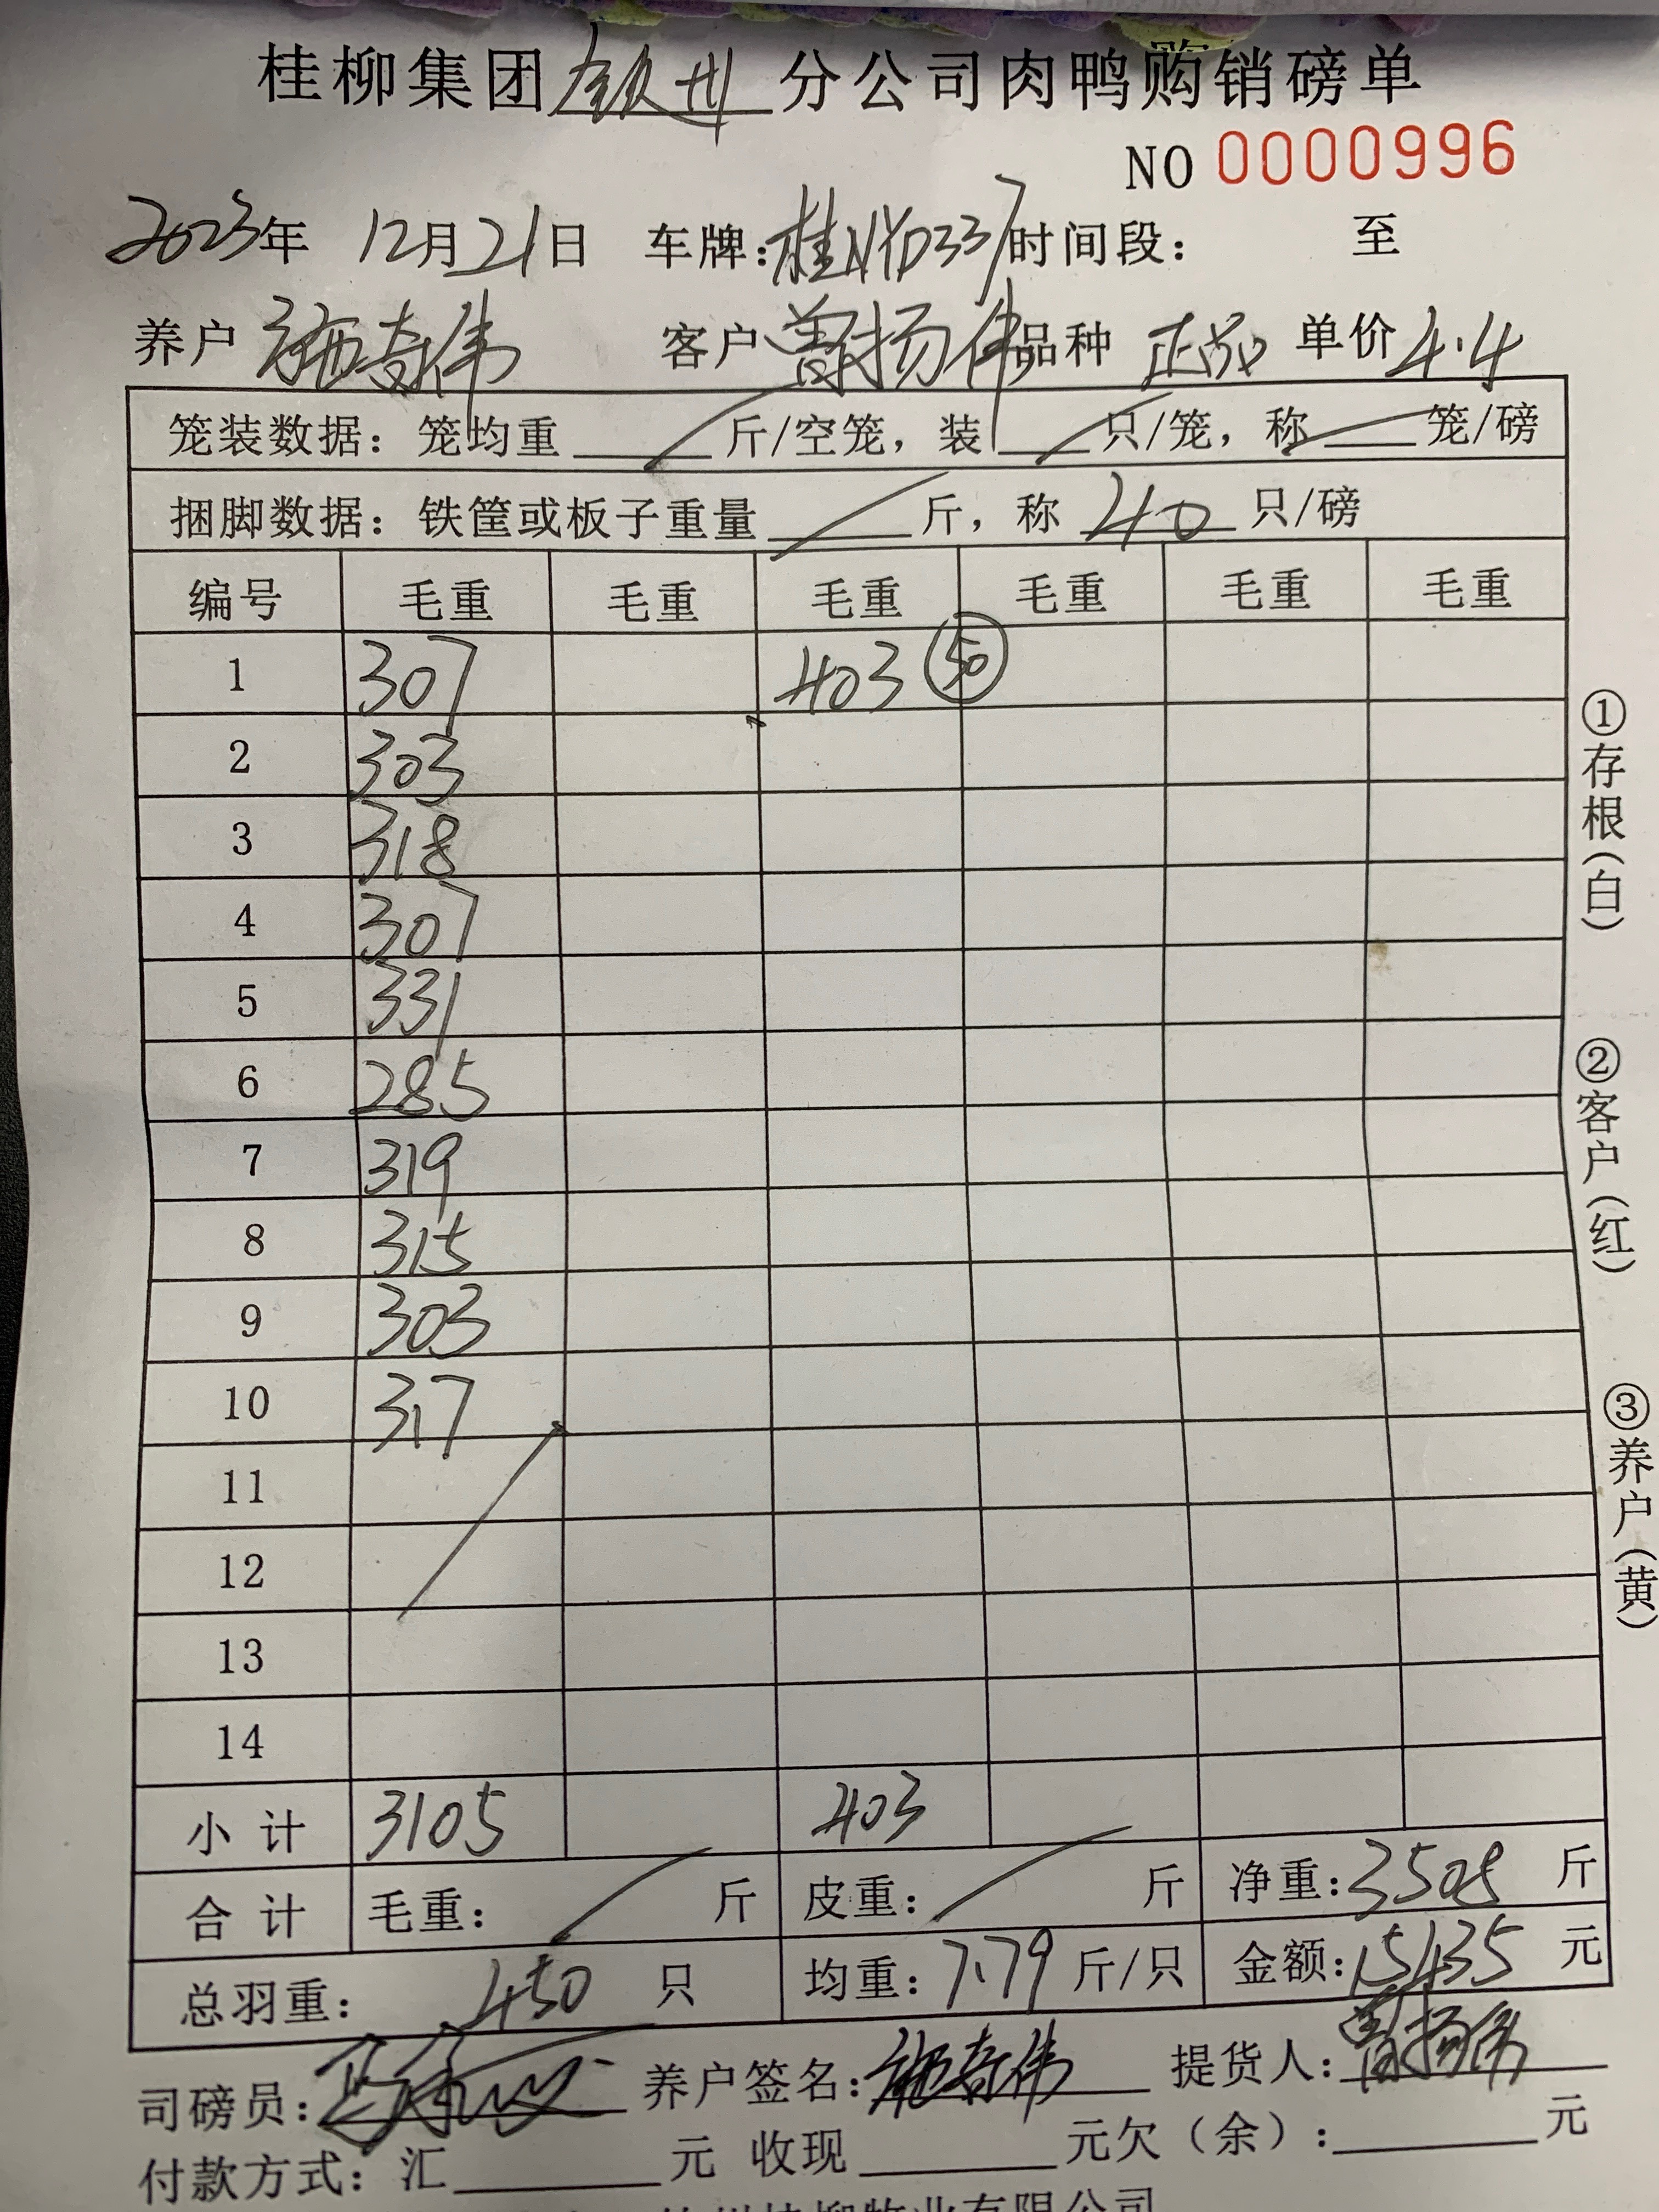 桂柳集团钦州分公司肉鸭购销磅单
NO 0000996
2023年 12月21日 车牌:桂NYD337时间段: 至
养户 施奇伟 客户 曾扬伟 品种 正品 单价 4.4
笼装数据: 笼均重 斤/空笼, 装 只/笼, 称 笼/磅
捆脚数据: 铁筐或板子重量 斤, 称 40 只/磅
编号 毛重 毛重 毛重 毛重 毛重 毛重
1 307 403 50
2 303
3 318
4 307
5 331
6 285
7 319
8 315
9 303
10 317
11
12
13
14
小计 3105 403
合计 毛重: 斤 皮重: 斤 净重:3508 斤
总羽重: 450 只 均重:7.79 斤/只 金额:15435 元
司磅员: 养户签名:施奇伟 提货人:曾扬伟
付款方式: 汇 元 收现 元欠(余): 元
①存根(白)
②客户(红)
③养户(黄)